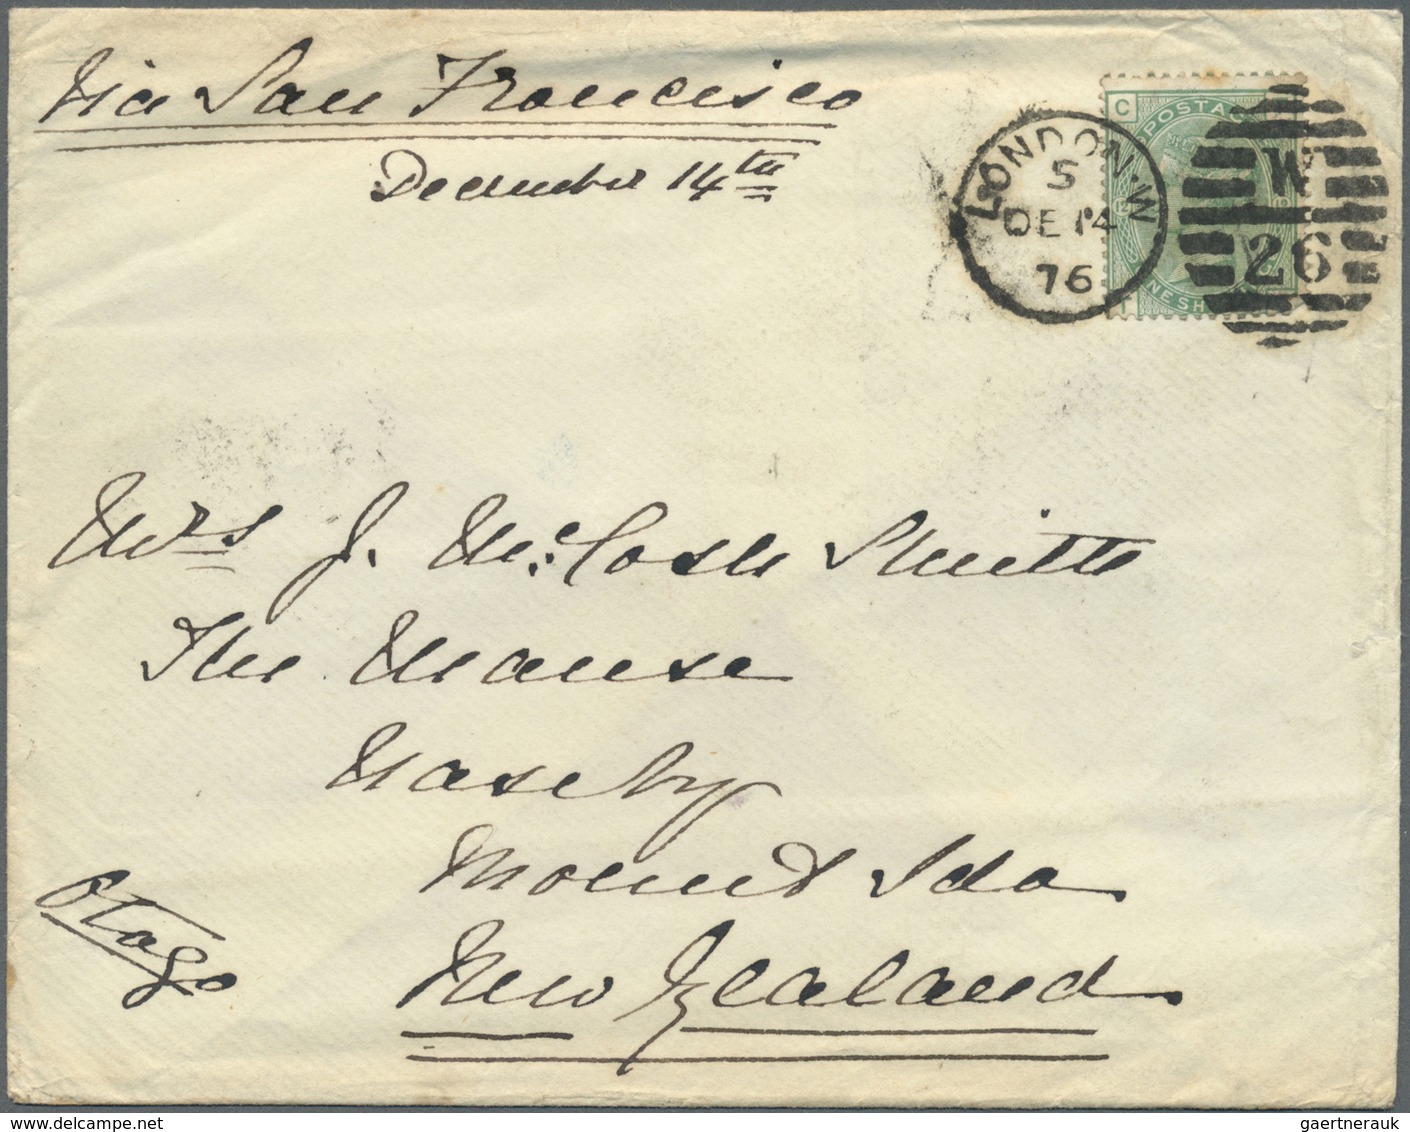 Via San Francisco
December 14th
C POSTAG
LONDON.W
5
DE 14
76
W
26
12
I NE SH
Mrs J. McCosh Smith
The Manse
Naseby
Mount Ida
Otago
New Zealand
gaertnerauk